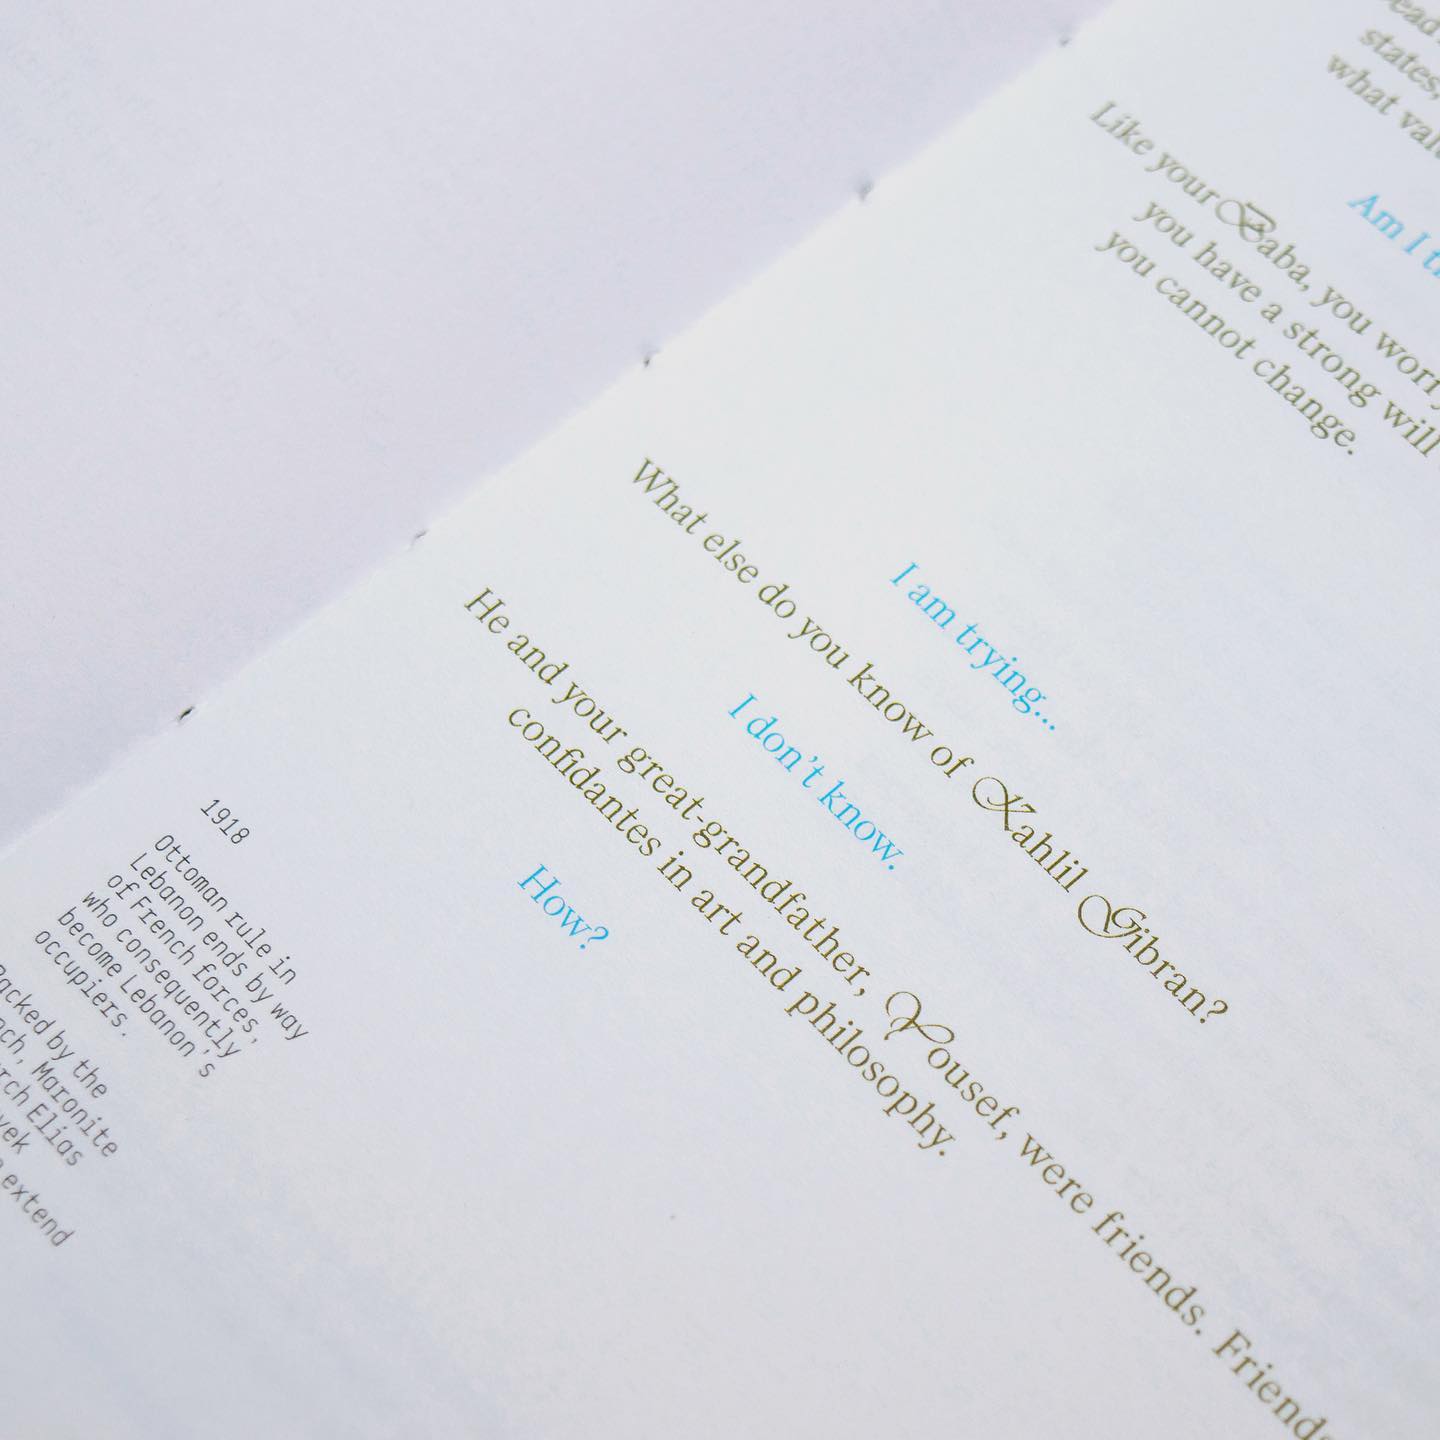 states,
what
Am I
Like your Baba, you worry
you have a strong will
you cannot change.
I am trying...
What else do you know of Kahlil Gibran?
I don't know.
He and your great-grandfather, Yousef, were friends. Friends
confidantes in art and philosophy.
How?
1918
Ottoman rule in
Lebanon ends by way
of French forces,
who consequently
become Lebanon's
occupiers.
by the
Maronite
Elias
extend